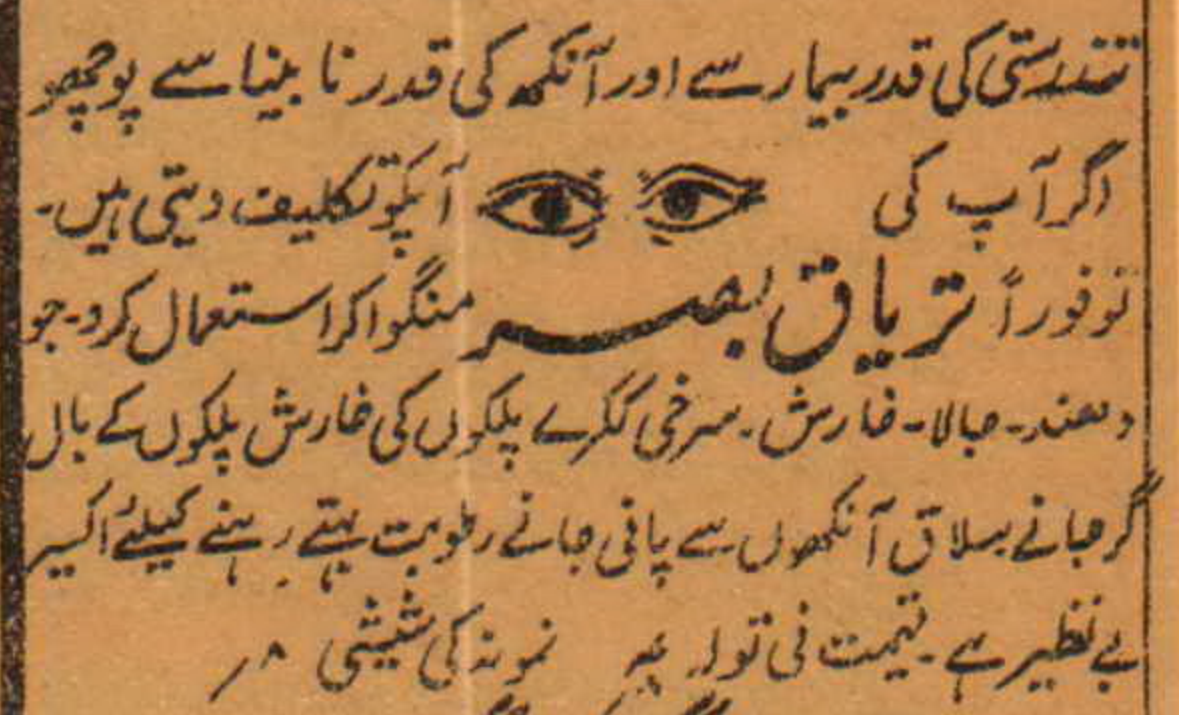 تندرستی کی قدر بیمار سے اور آنکھ کی قدر نابینا سے پوچھو
اگر آپ کی آپکو تکلیف دیتی ہیں۔
تو فوراً تریاق بصر منگوا کر استعمال کرو۔ جو
دھند۔ جالا۔ خارش۔ سرخی ککرے پلکوں کی خارش پلکوں کے بال
گر جانے سلاق آنکھوں سے پانی جانے رطوبت بہتے رہنے کیلئے اکسیر
بے نظیر ہے۔ قیمت فی تولہ نمونہ کی شیشی ۸ر